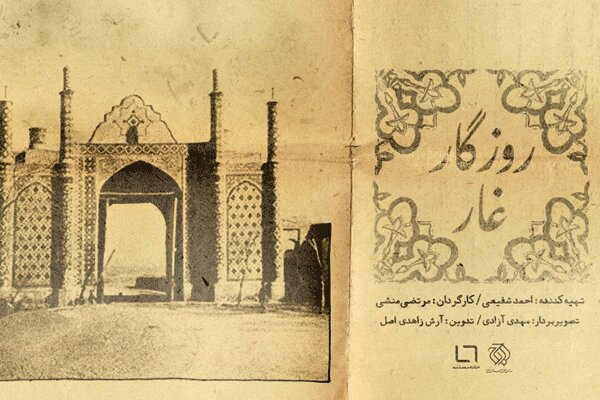 روزگار
غار
تهیه‌کننده: احمد شفیعی / کارگردان: مرتضی منشی
تصویربردار: مهدی آزادی / تدوین: آرش زاهدی اصل
خانه مستند